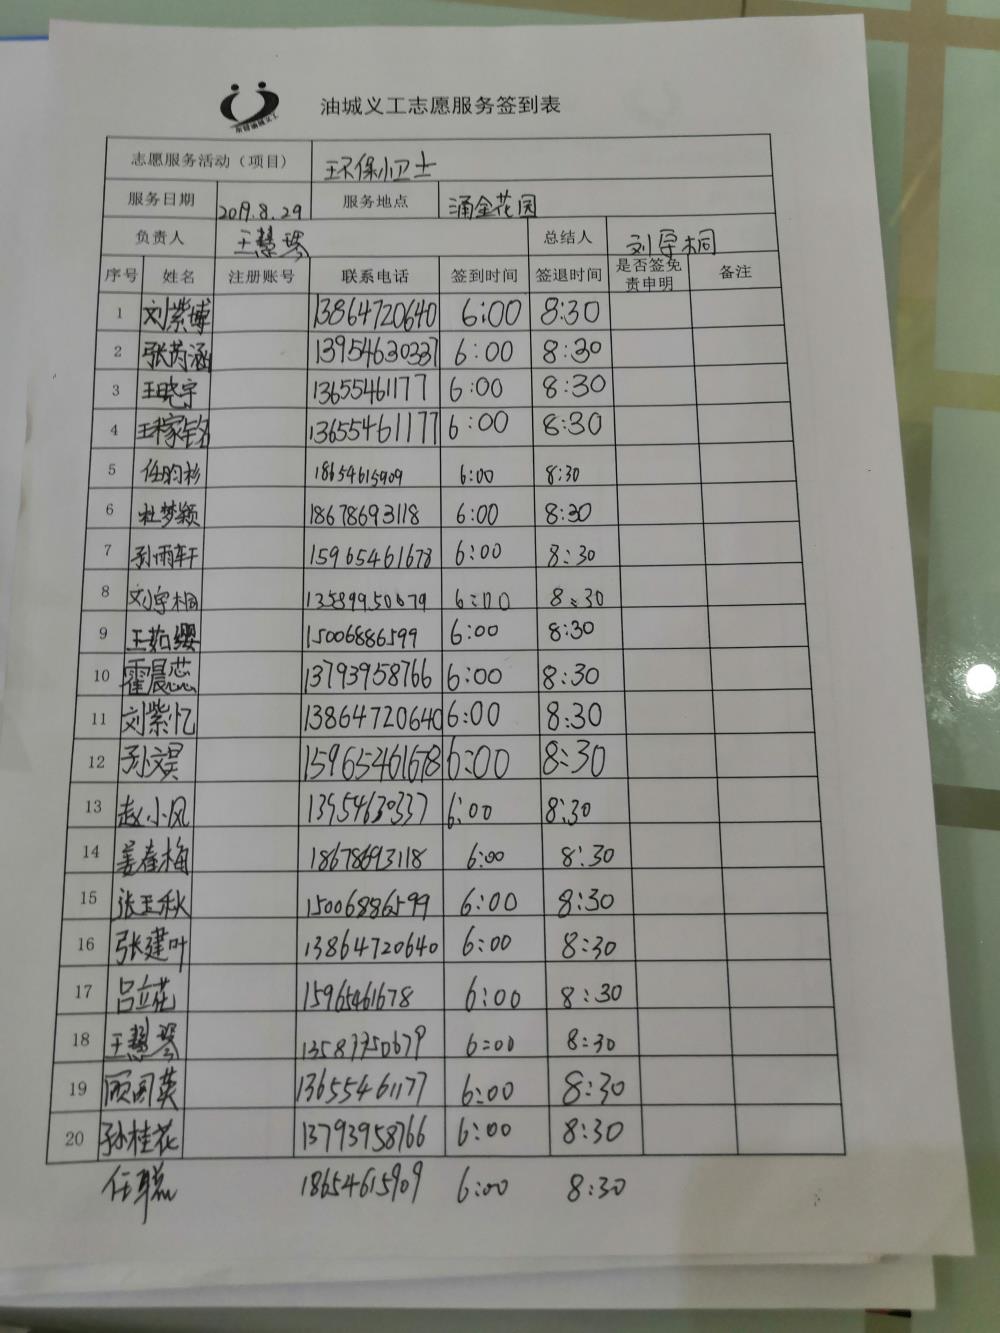 东营油城义工
油城义工志愿服务签到表
志愿服务活动（项目） 环保小卫士
服务日期 2019.8.29 服务地点 涌金花园
负责人 王慧琴 总结人 刘宇桐
序号 姓名 注册账号 联系电话 签到时间 签退时间 是否签免责申明 备注
1 刘紫博 13864720640 6:00 8:30
2 张芮涵 13954630337 6:00 8:30
3 王晓宇 13655461177 6:00 8:30
4 王稼铭 13655461177 6:00 8:30
5 任昀杉 18654615909 6:00 8:30
6 杜梦颖 18678693118 6:00 8:30
7 孙雨轩 15965461678 6:00 8:30
8 刘宇桐 13589950679 6:00 8:30
9 王茹缨 15006886599 6:00 8:30
10 霍晨蕊 13793958766 6:00 8:30
11 刘紫忆 13864720640 6:00 8:30
12 孙文昊 15965461678 6:00 8:30
13 赵小风 13954630337 6:00 8:30
14 姜春梅 18678693118 6:00 8:30
15 张玉秋 15006886599 6:00 8:30
16 张建叶 13864720640 6:00 8:30
17 吕立花 15965461678 6:00 8:30
18 王慧琴 13589950679 6:00 8:30
19 顾国英 13655461177 6:00 8:30
20 孙桂花 13793958766 6:00 8:30
任聪 18654615909 6:00 8:30